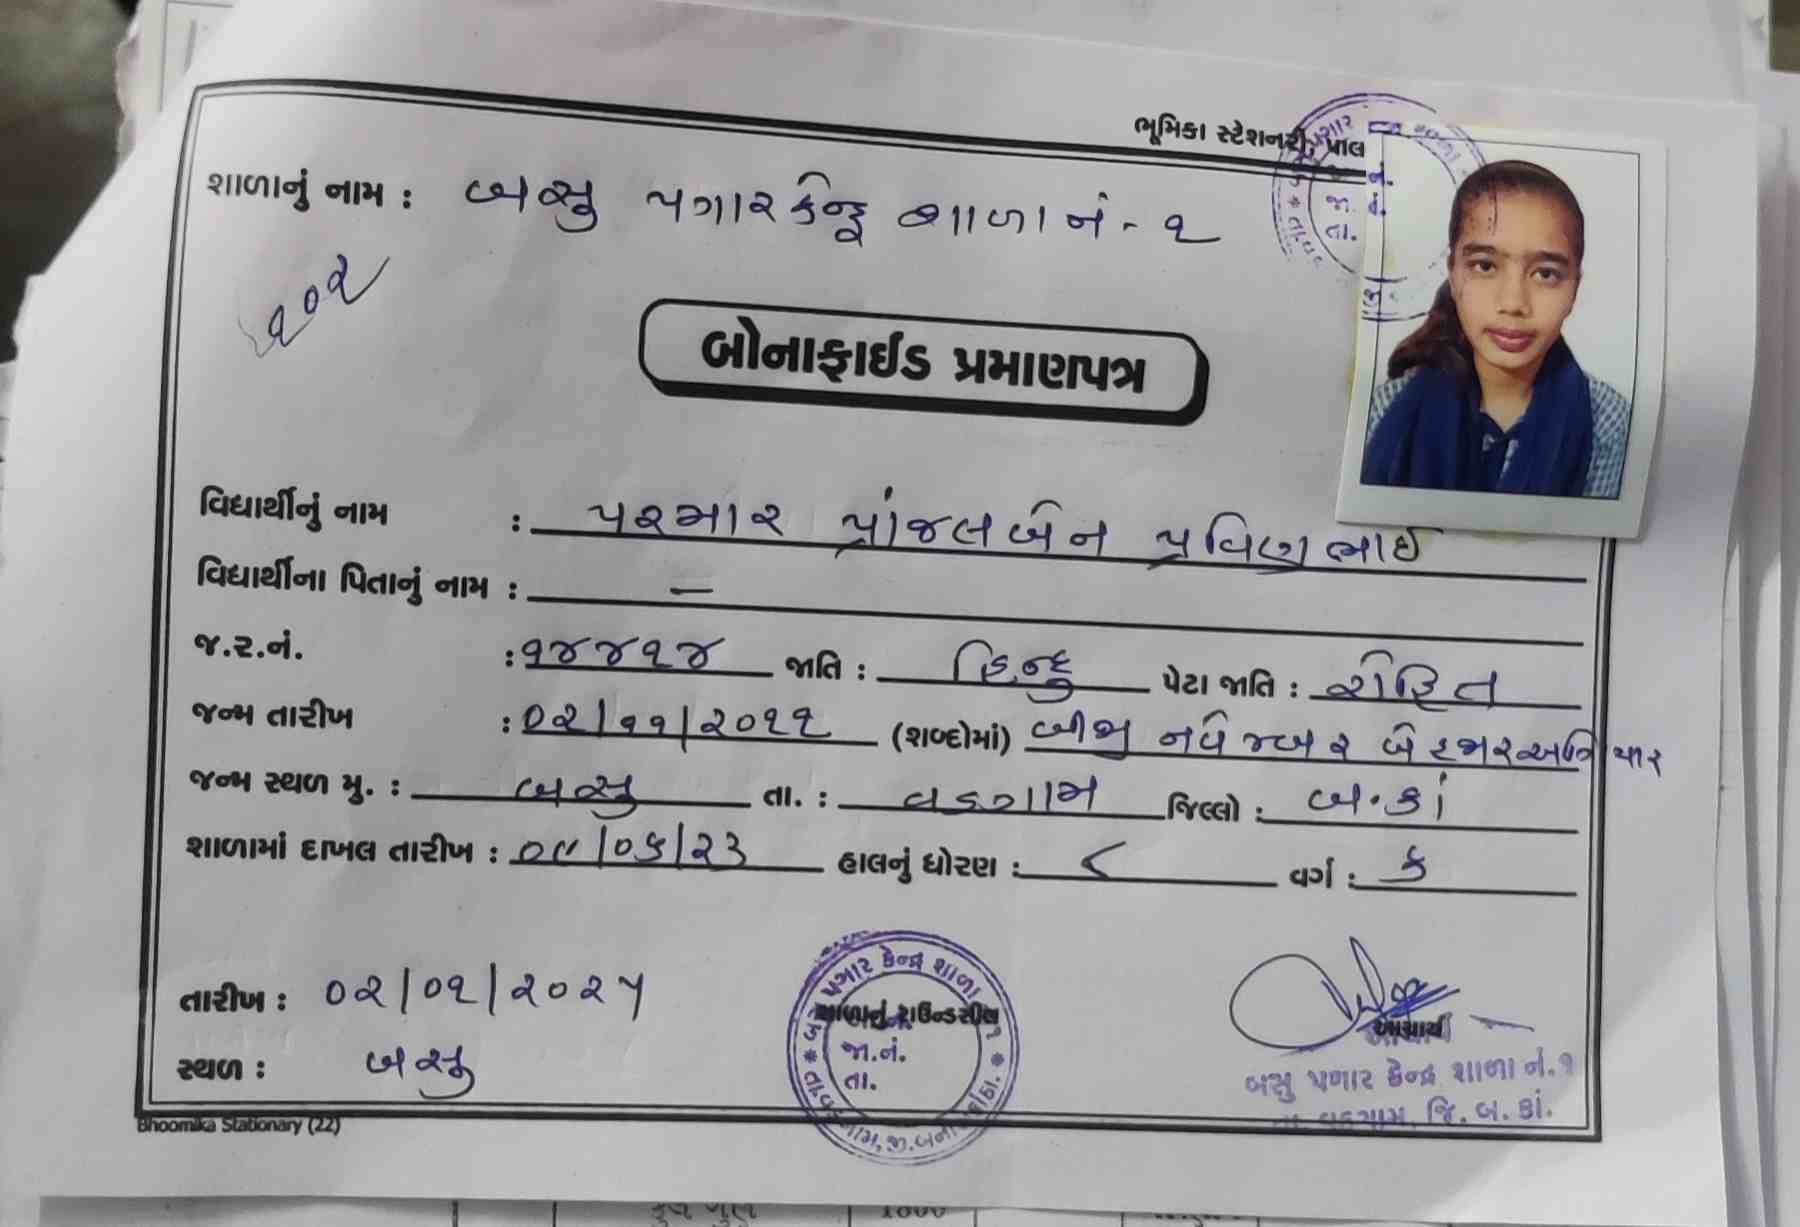 ભૂમિકા સ્ટેશનરી, પાલ
શાળાનું નામ : બસુ પગારકેન્દ્ર શાળા નં - ૧
૨૦૨
બોનાફાઈડ પ્રમાણપત્ર
વિદ્યાર્થીનું નામ : પરમાર પ્રાંજલબેન પ્રવિણભાઈ
વિદ્યાર્થીના પિતાનું નામ : —
જ.ર.નં. : ૧૪૪૧૪ જાતિ : હિન્દુ પેટા જાતિ : રોહિત
જન્મ તારીખ : ૦૨/૧૧/૨૦૧૧ (શબ્દોમાં) બીજી નવેમ્બર બે હજાર અગિયાર
જન્મ સ્થળ મુ. : બસુ તા. : વડગામ જિલ્લો : બ.કાં
શાળામાં દાખલ તારીખ : ૦૫/૦૬/૨૩ હાલનું ધોરણ : ૮ વર્ગ : ક
તારીખ : ૦૨/૦૧/૨૦૨૫
સ્થળ : બસુ
બસુ પગાર કેન્દ્ર શાળા નં. ૧
શાળાનું રાઉન્ડસીલ
જા.નં.
તા.
આચાર્ય
બસુ પગાર કેન્દ્ર શાળા નં.૧
તા. વડગામ, જિ. બ. કાં.
Bhoomika Stationary (22)